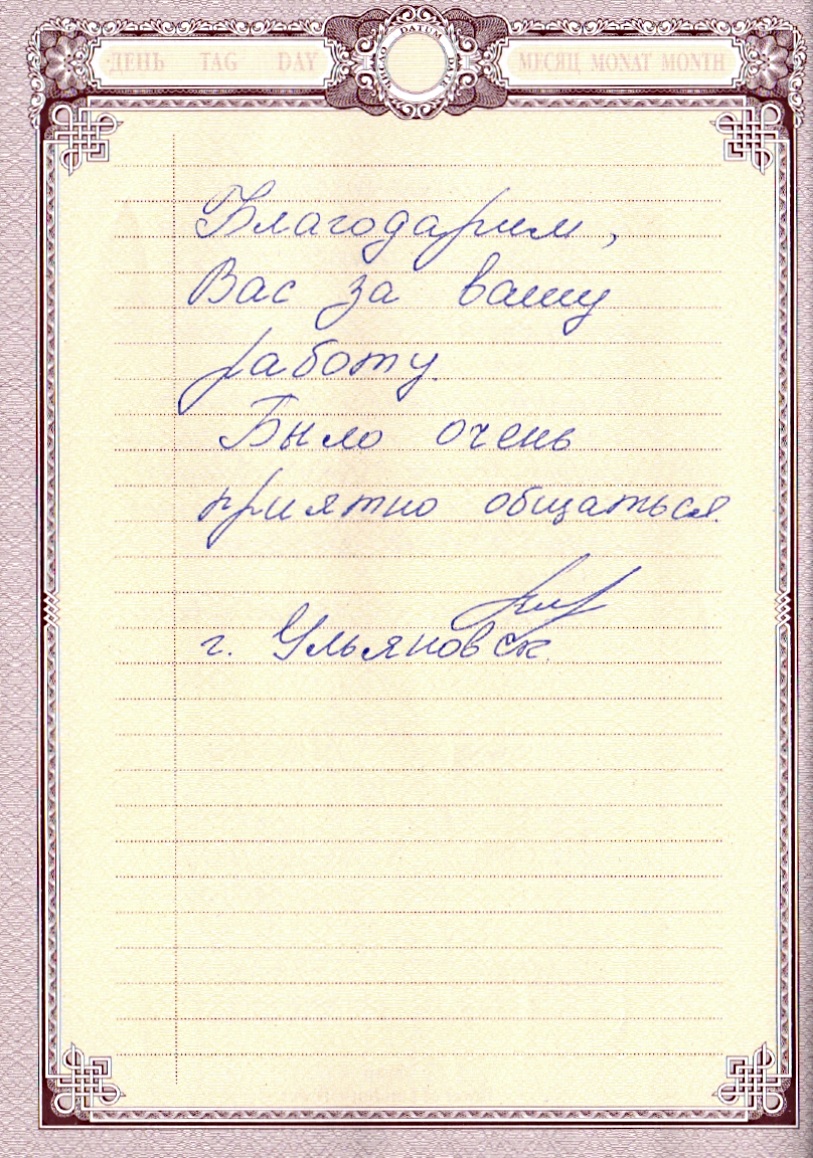 ДЕНЬ TAG DAY DATUM МЕСЯЦ MONAT MONTH
Благодарим,
Вас за вашу
работу.
Было очень
приятно общаться.
г. Ульяновск.